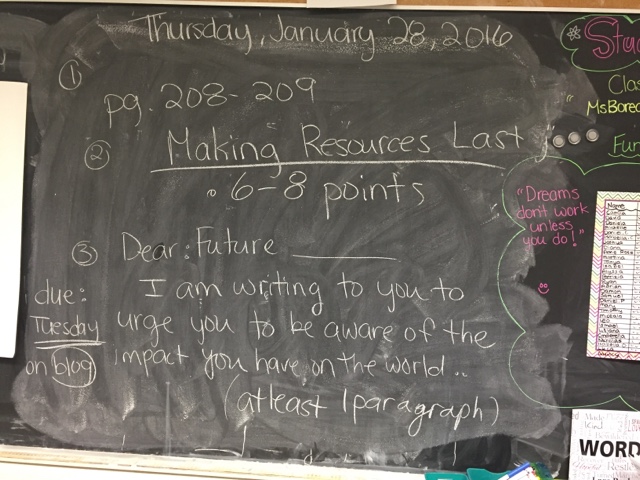 Thursday, January 28, 2016
①
pg. 208-209
② Making Resources Last
• 6-8 points
③ Dear: Future ________
due:
Tuesday
on blog
I am writing to you to
urge you to be aware of the
impact you have on the world..
(atleast 1 paragraph)
Clas
MsBored
Fun
"Dreams
don't work
unless
you do!"
Name
WORD